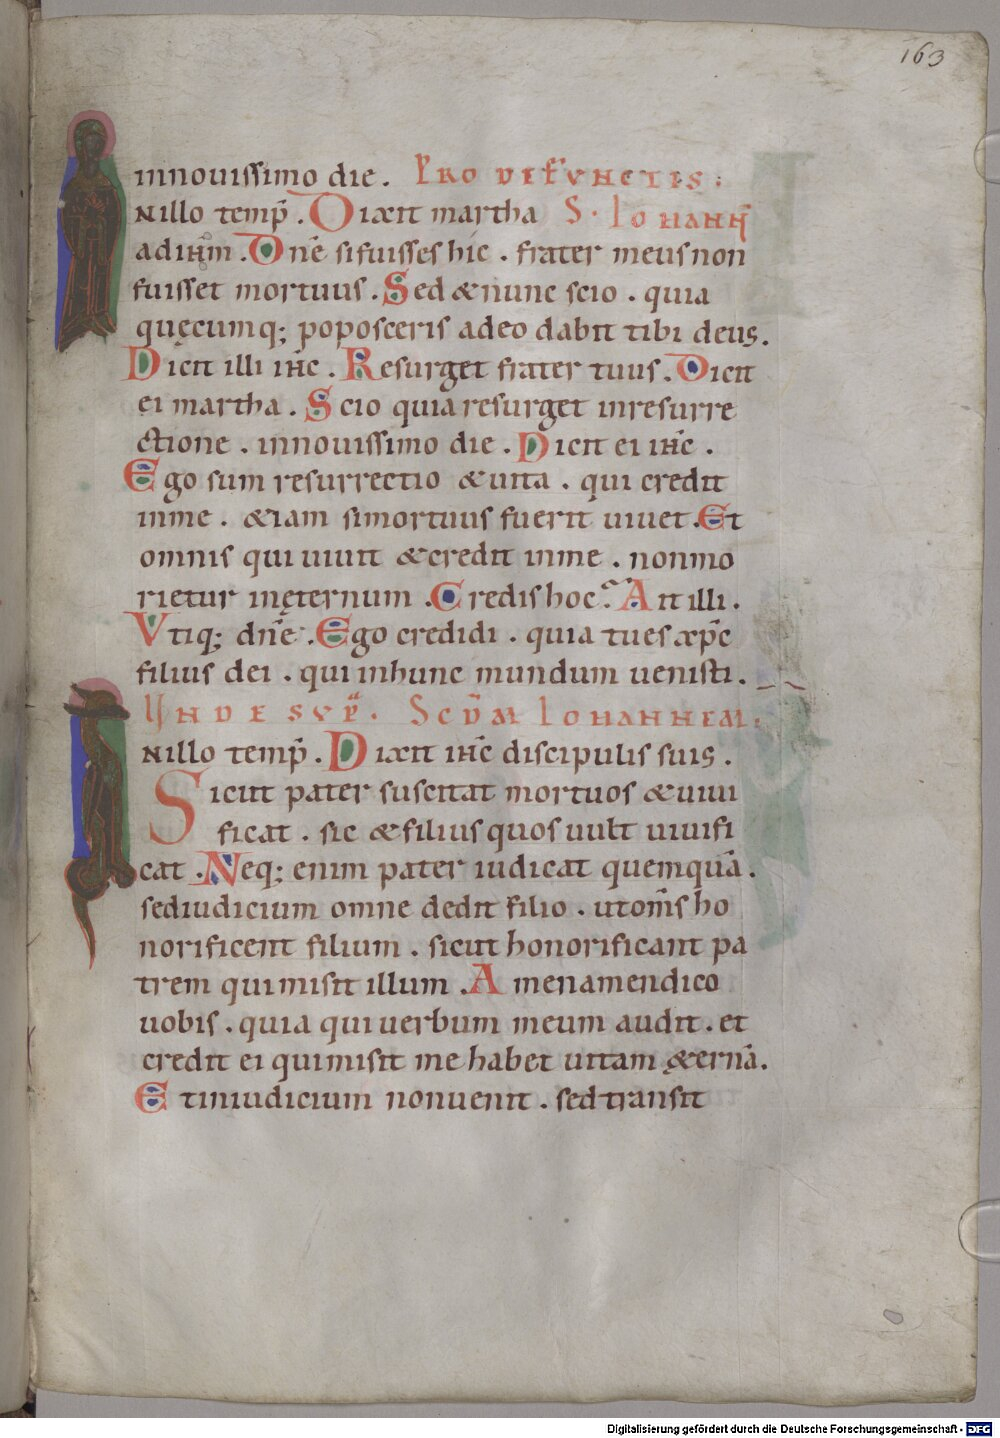 163
innouissimo die. PRO DEFUNCTIS:
Nillo temp̄. Dixit martha S. IOHANN̄
ad ihm̄. Dn̄e si fuisses hic. frater meus non
fuisset mortuus. Sed & nunc scio. quia
quęcumq; poposceris a deo dabit tibi deus.
Dicit illi ihc̄. Resurget frater tuus. Dicit
ei martha. Scio quia resurget inresurre
ctione. innouissimo die. Dicit ei ihc̄.
Ego sum resurrectio & uita. qui credit
inme. &iam simortuus fuerit uiuet. Et
omnis qui uiuit & credit inme. nonmo
rietur inęternum. Credis hoc? Ait illi.
Vtiq; dn̄e. Ego credidi. quia tu es xp̄c
filius dei. qui inhunc mundum uenisti.
UNDE SUP̄. SCD̄M IOHANNEM.
Nillo temp̄. Dixit ihc̄ discipulis suis.
Sicut pater suscitat mortuos & uiui
ficat. sic & filius quos uult uiuifi
cat. Neq; enim pater iudicat quemquā.
sed iudicium omne dedit filio. ut om̄s ho
norificent filium. sicut honorificant pa
trem qui misit illum. Amen amen dico
uobis. quia qui uerbum meum audit. et
credit ei qui misit me habet uitam ę&ernā.
Et iniudicium non uenit. sed transit
Digitalisierung gefördert durch die Deutsche Forschungsgemeinschaft - DFG